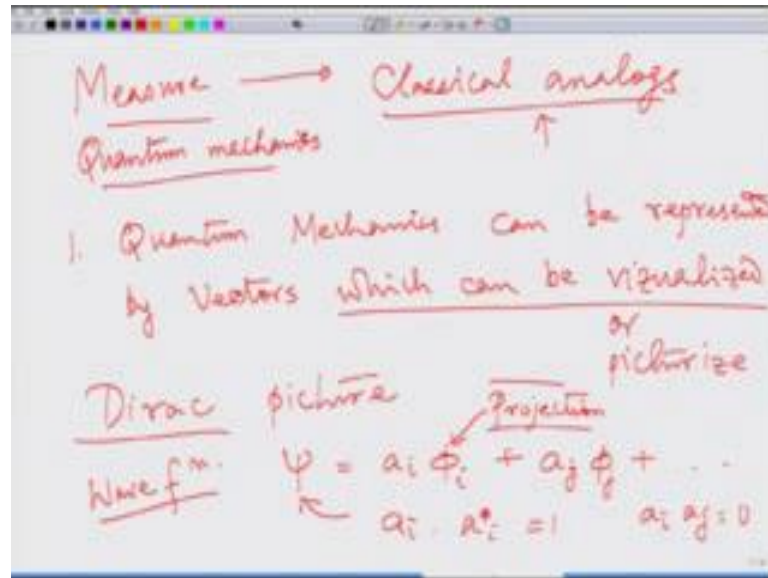 Measure → Classical analogs
↑
Quantum mechanics
1. Quantum Mechanics can be represented
by Vectors which can be vizualized
or
picturize
Dirac picture
Projection
Wave fⁿ. ψ = aᵢ ϕᵢ + aⱼ ϕⱼ + . . .
aᵢ . a*ᵢ = 1 aᵢ aⱼ = 0